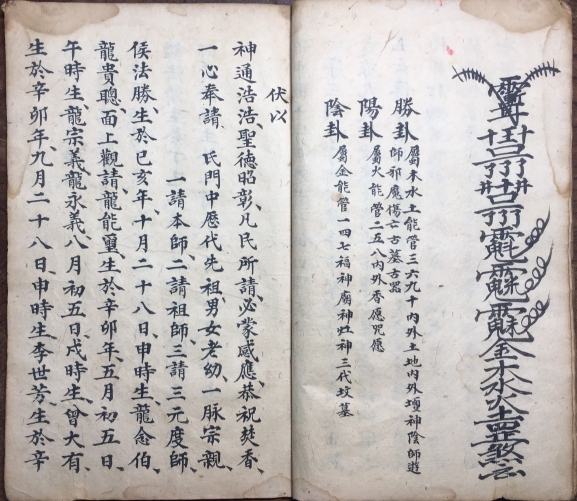 金木水火土
勝卦 屬木水土能管三六九十內外土地內外壇神陰師遊
師邪魔傷亡古墓古器
陽卦 屬火能管二五八內外香愿咒愿
陰卦 屬金能管一四七福神廟神灶神三代坟墓
伏以
神通浩浩聖德昭彰凡民所請、必蒙感應、恭祝焚香、
一心奉請、氏門中歷代先祖男女老幼一脉宗親、
一請本師、二請祖師、三請三元度師、
侯法勝、生於己亥年十月二十八日、申時生、龍念伯、
龍貴聰、面上觀請龍能璽、生於辛卯年五月初五日、
午時生、龍宗義、龍永義、八月初五日、戌時生、曾大有、
生於辛卯年、九月二十八日、申時生、李世芳、生於辛